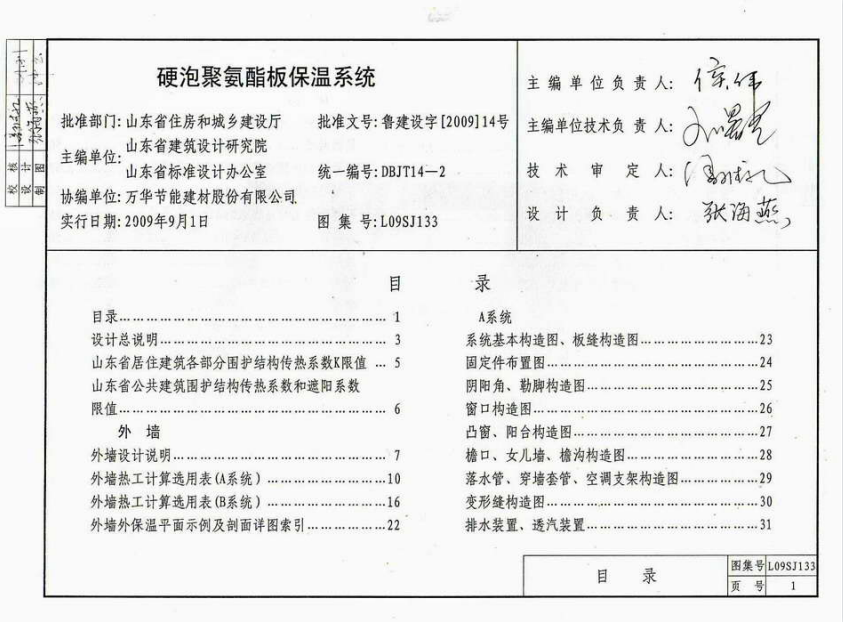 硬泡聚氨酯板保温系统
批准部门:山东省住房和城乡建设厅 批准文号:鲁建设字[2009]14号
主编单位:山东省建筑设计研究院
山东省标准设计办公室 统一编号:DBJT14—2
协编单位:万华节能建材股份有限公司
实行日期:2009年9月1日 图 集 号:L09SJ133
主编单位负责人:
主编单位技术负责人:
技术审定人:
设计负责人: 张海燕
校核
设计
制图
目 录
目录 1
设计总说明 3
山东省居住建筑各部分围护结构传热系数K限值 5
山东省公共建筑围护结构传热系数和遮阳系数
限值 6
外 墙
外墙设计说明 7
外墙热工计算选用表(A系统) 10
外墙热工计算选用表(B系统) 16
外墙外保温平面示例及剖面详图索引 22
A系统
系统基本构造图、板缝构造图 23
固定件布置图 24
阴阳角、勒脚构造图 25
窗口构造图 26
凸窗、阳台构造图 27
檐口、女儿墙、檐沟构造图 28
落水管、穿墙套管、空调支架构造图 29
变形缝构造图 30
排水装置、透汽装置 31
目 录
图集号 L09SJ133
页 号 1